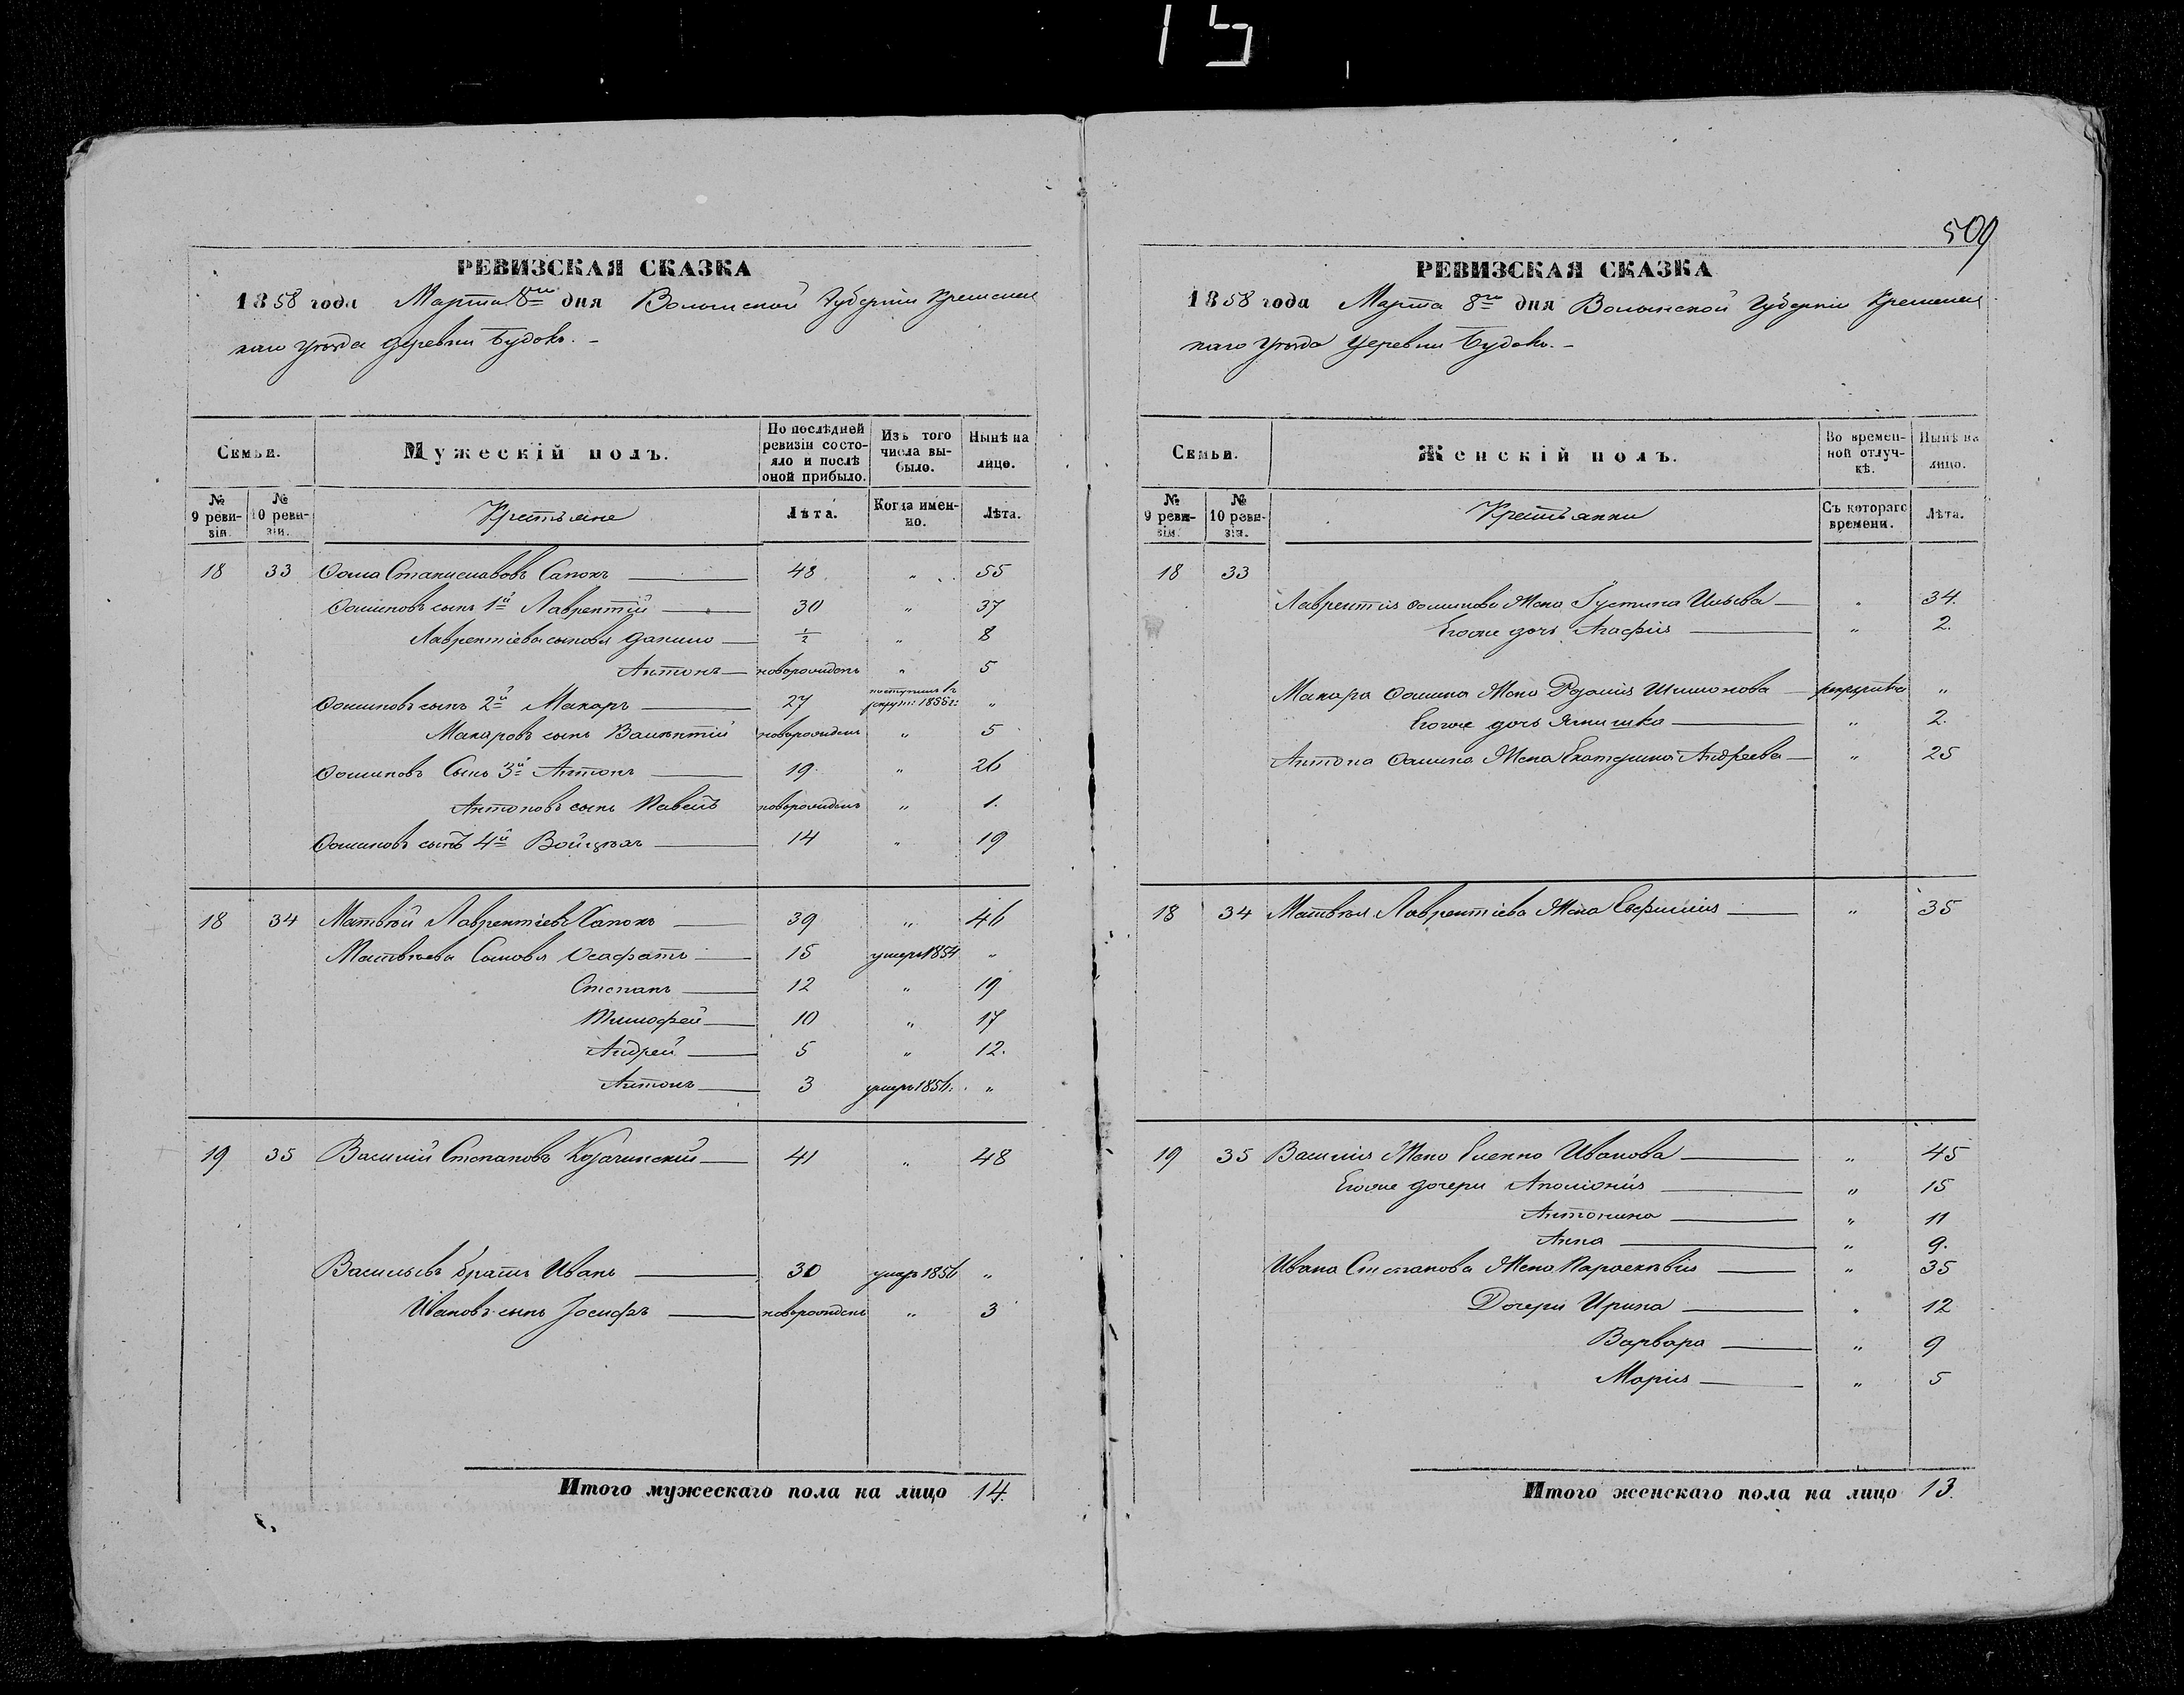 15
509
РЕВИЗСКАЯ СКАЗКА
1858 года Марта 8го дня Волынской Губерніи Кременец
каго уѣзда деревни Будокъ. -
Семьи. Мужескій полъ. По послѣдней ревизіи состояло и послѣ оной прибыло. Изъ того числа выбыло. Нынѣ на лицо.
№ 9 ревизіи. № 10 ревизіи. Крестьяне Лѣта. Когда именно. Лѣта.
18 33 Ѳома Станиславовъ Сапокъ 48 „ 55
Ѳоминовъ сынъ 1й Лаврентій 30 „ 37
Лаврентіева сыновья Данило ½ „ 8
Антонъ новорожденъ „ 5
Ѳоминовъ сынъ 2й Макаръ 27 поступилъ въ рекрут: 1855г: „
Макаровъ сынъ Валентій новорожденъ „ 5
Ѳоминовъ Сынъ 3й Антонъ 19. „ 26
Антоновъ сынъ Павелъ новорожденъ „ 1.
Ѳоминовъ сынъ 4й Войцѣхъ 14 „ 19
18 34 Матвѣй Лаврентіевъ Сапокъ 39 „ 46
Матвѣева Сыновья Осафатъ 15 умеръ 1854 „
Степанъ 12 „ 19
Тимофей 10 „ 17
Андрей 5 „ 12.
Антонъ 3 умеръ 1856. „
19 35 Василій Степановъ Козачинскій 41 „ 48
Васильевъ братъ Иванъ 30 умеръ 1856 „
Ивановъ сынъ Іосифъ новорожденъ „ 3
Итого мужескаго пола на лицо 14.
РЕВИЗСКАЯ СКАЗКА
1858 года Марта 8го дня Волынской Губерніи Кременец
каго уѣзда деревни Будокъ. -
Семьи. Женскій полъ. Во временной отлучкѣ. Нынѣ на лицо.
№ 9 ревизіи. № 10 ревизіи. Крестьянки Съ котораго времени. Лѣта.
18 33
Лаврентія Ѳоминова Жена Густина Ильева „ 34.
Егоже дочь Агафія „ 2.
Макара Ѳомина Жена Розалія Шимонова рекрутка „
Егоже дочь „ 2.
Антона Ѳомина Жена Екатерина Андреева „ 25
18 34 Матвѣя Лаврентіева Жена Евфимія „ 35
19 35 Василія Жена Еленна Иванова „ 45
Егоже дочери Аполіонія „ 15
Антонина „ 11
Анна „ 9.
Ивана Степанова Жена Параскѣвія „ 35
Дочери Ирина „ 12
Варвара „ 9
Марія „ 5
Итого женскаго пола на лицо 13.